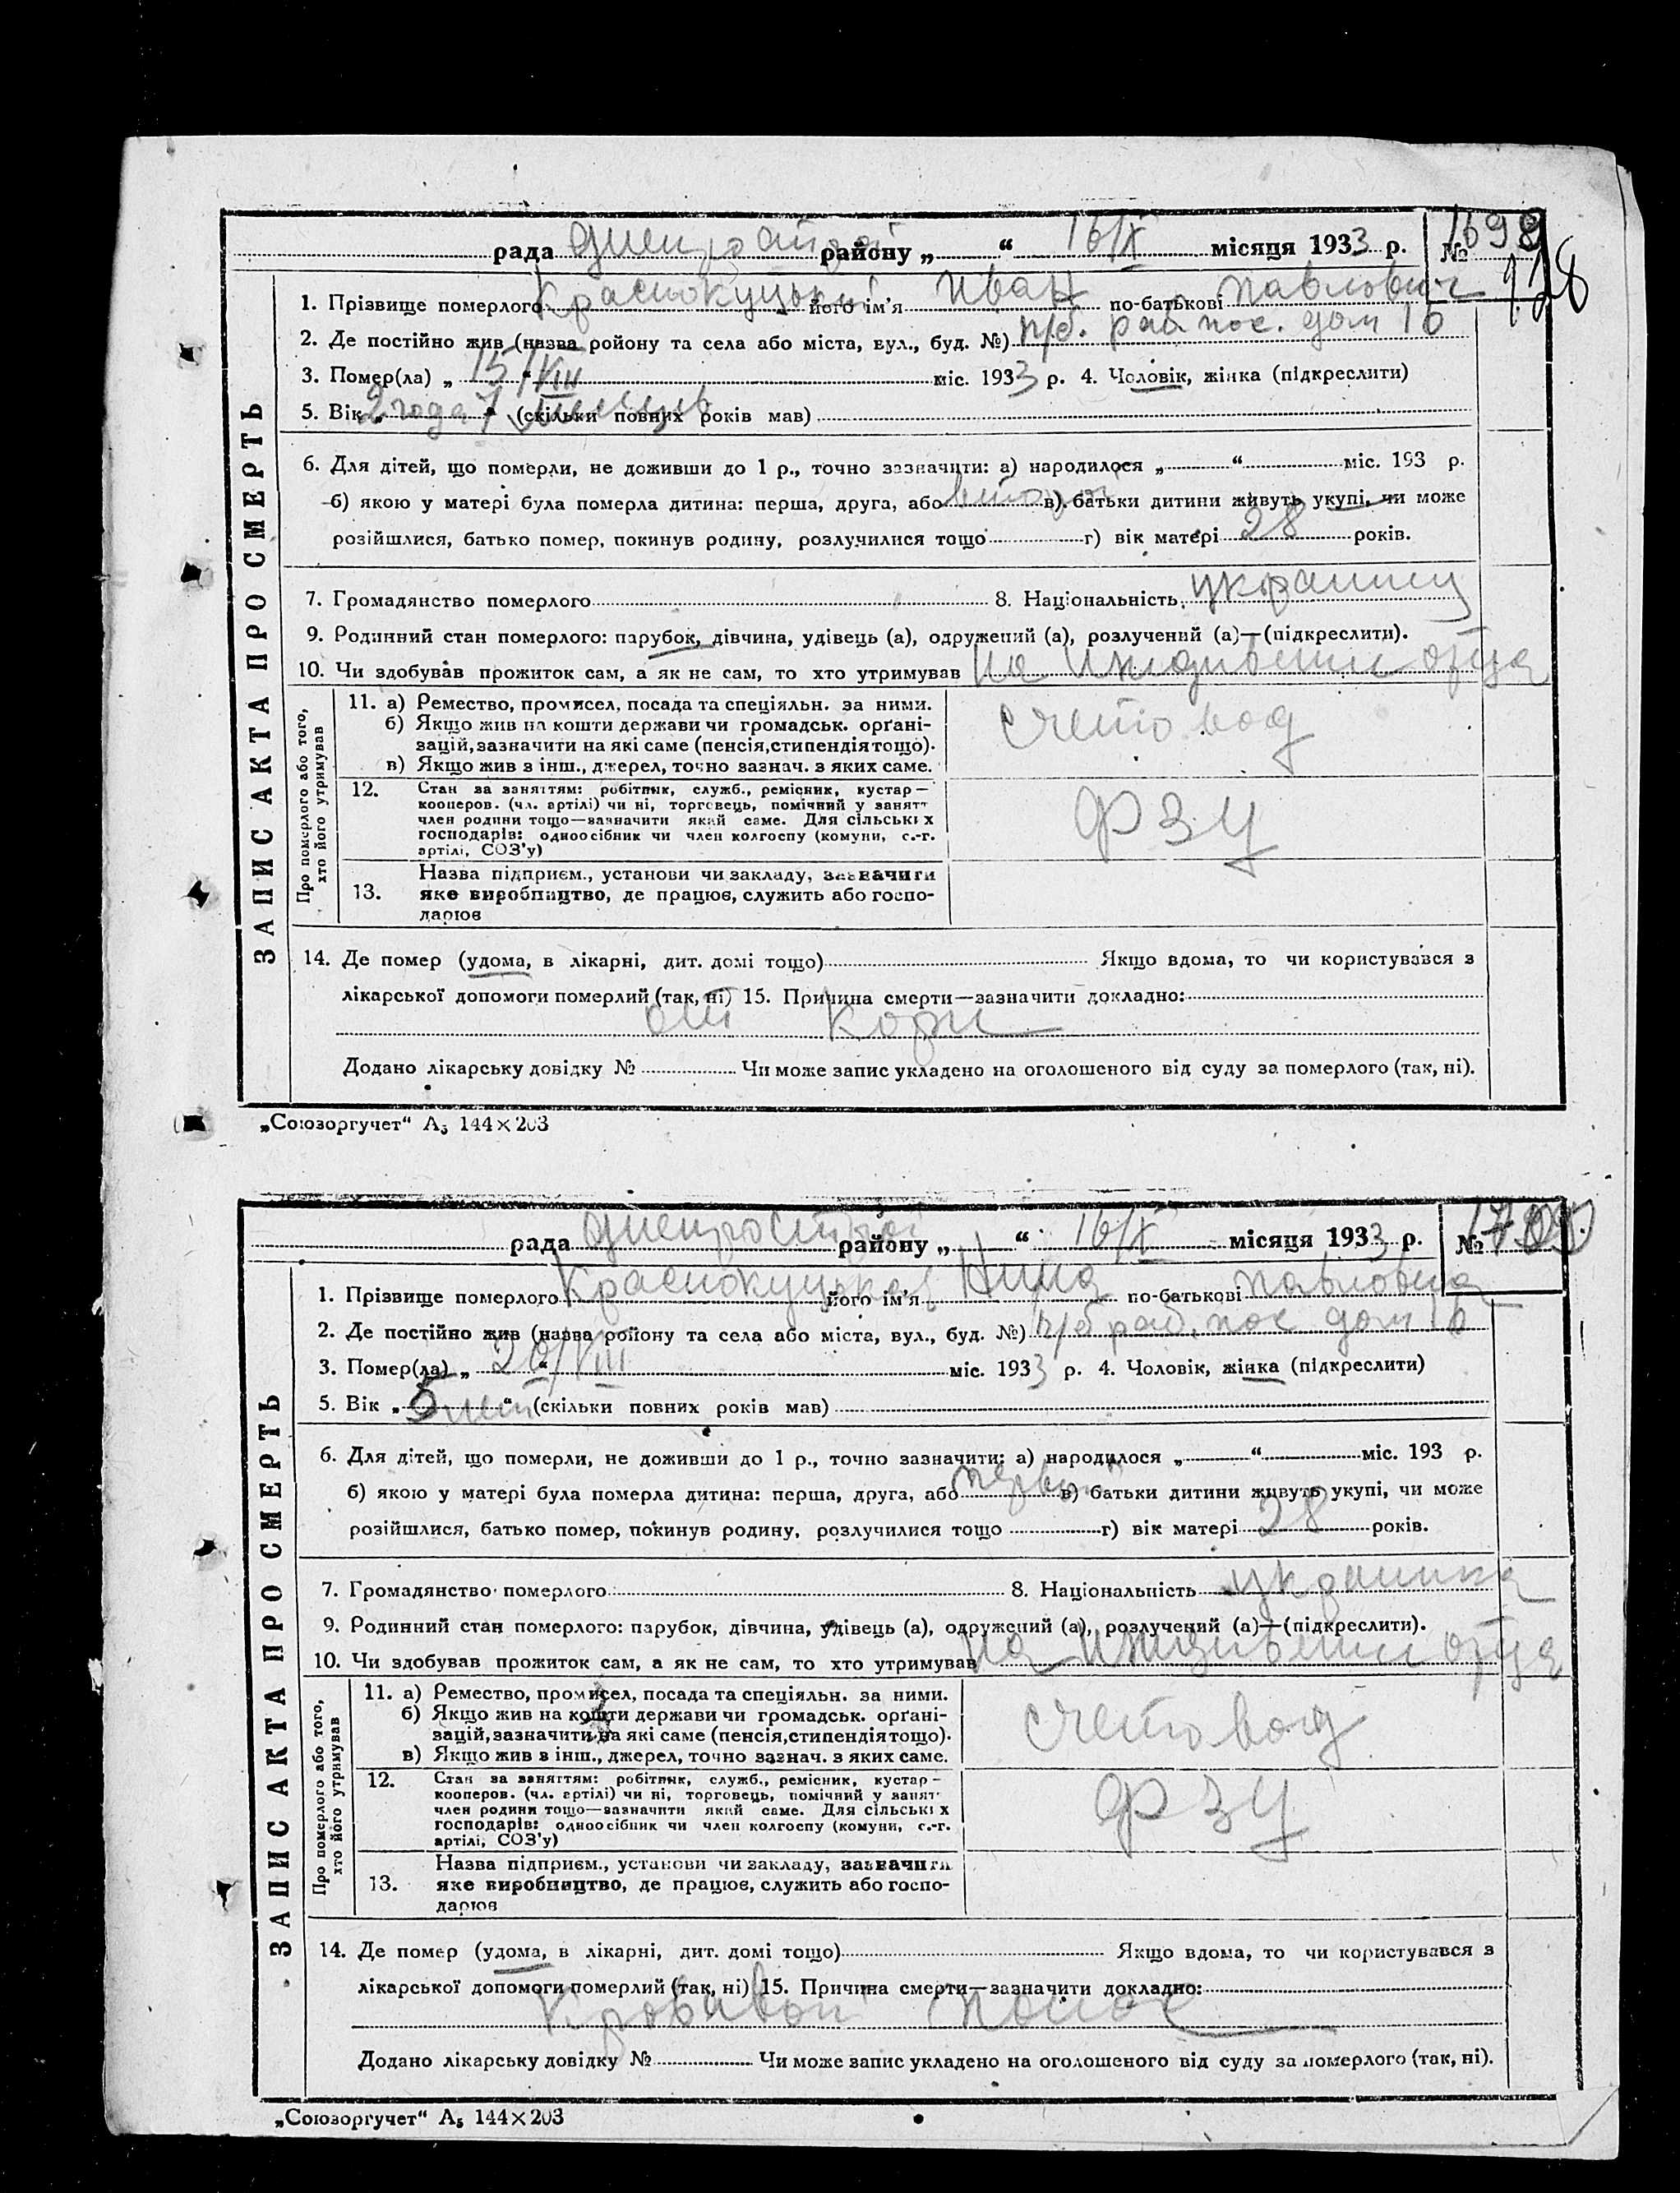 рада Днепрострой району „ “ 16/X місяця 1933 р. № 1699
128
1. Прізвище померлого Краснокуцький його ім'я Иван по-батькові Павлович
2. Де постійно жив (назва ройону та села або міста, вул., буд. №) п/б. раб. пос. дом 16
3. Помер(ла) „ 15/VIII “ міс. 1933 р. 4. Чоловік, жінка (підкреслити)
5. Вік „ 2 года 7 месяцев “ (скільки повних років мав)
6. Для дітей, що померли, не доживши до 1 р., точно зазначити: а) народилося „ “ міс. 193 р.
б) якою у матері була померла дитина: перша, друга, або второй в) батьки дитини живуть укупі, чи може
розійшлися, батько помер, покинув родину, розлучилися тощо г) вік матері 28 років.
7. Громадянство померлого 8. Національність украинец
9. Родинний стан померлого: парубок, дівчина, удівець (а), одружений (а), розлучений (а)—(підкреслити).
10. Чи здобував прожиток сам, а як не сам, то хто утримував на иждивении отца
ЗАПИС АКТА ПРО СМЕРТЬ
Про померлого або того, хто його утримував
11. а) Ремество, промисел, посада та спеціяльн. за ними.
б) Якщо жив на кошти держави чи громадськ. орґані-
зацій, зазначити на які саме (пенсія, стипендія тощо).
в) Якщо жив з інш., джерел, точно зазнач. з яких саме.
счетовод
12. Стан за заняттям: робітник, служб., ремісник, кустар—
кооперов. (чл. артілі) чи ні, торговець, помічний у занятт
член родини тощо—зазначити який саме. Для сільських
господарів: одноосібник чи член колгоспу (комуни, с.-г.
артілі, СОЗ'у)
ФЗУ
13. Назва підприєм., установи чи закладу, зазначити
яке виробництво, де працює, служить або госпо-
дарює
14. Де помер (удома, в лікарні, дит. домі тощо) Якщо вдома, то чи користувався з
лікарської допомоги померлий (так, ні) 15. Причина смерти—зазначити докладно:
от кори
Додано лікарську довідку № Чи може запис укладено на оголошеного від суду за померлого (так, ні).
„Союзоргучет“ А5 144×203
рада Днепрострой району „ “ 16/X місяця 1933 р. № 1700
1. Прізвище померлого Краснокуцькая його ім'я Нина по-батькові Павловна
2. Де постійно жив (назва ройону та села або міста, вул., буд. №) п/б раб. пос дом 16
3. Помер(ла) „ 20/VIII “ міс. 1933 р. 4. Чоловік, жінка (підкреслити)
5. Вік „ 5 лет “ (скільки повних років мав)
6. Для дітей, що померли, не доживши до 1 р., точно зазначити: а) народилося „ “ міс. 193 р.
б) якою у матері була померла дитина: перша, друга, або первый в) батьки дитини живуть укупі, чи може
розійшлися, батько помер, покинув родину, розлучилися тощо г) вік матері 28 років.
7. Громадянство померлого 8. Національність украинка
9. Родинний стан померлого: парубок, дівчина, удівець (а), одружений (а), розлучений (а)—(підкреслити).
10. Чи здобував прожиток сам, а як не сам, то хто утримував на иждивении отца
ЗАПИС АКТА ПРО СМЕРТЬ
Про померлого або того, хто його утримував
11. а) Ремество, промисел, посада та спеціяльн. за ними.
б) Якщо жив на кошти держави чи громадськ. орґані-
зацій, зазначити на які саме (пенсія, стипендія тощо).
в) Якщо жив з інш., джерел, точно зазнач. з яких саме.
счетовод
12. Стан за заняттям: робітник, служб., ремісник, кустар—
кооперов. (чл. артілі) чи ні, торговець, помічний у занят
член родини тощо—зазначити який саме. Для сільських
господарів: одноосібник чи член колгоспу (комуни, с.-г.
артілі, СОЗ'у)
ФЗУ
13. Назва підприєм., установи чи закладу, зазначити
яке виробництво, де працює, служить або госпо-
дарює
14. Де помер (удома, в лікарні, дит. домі тощо) Якщо вдома, то чи користувався з
лікарської допомоги померлий (так, ні) 15. Причина смерти—зазначити докладно:
Кровавой понос
Додано лікарську довідку № Чи може запис укладено на оголошеного від суду за померлого (так, ні).
„Союзоргучет“ А5 144×203